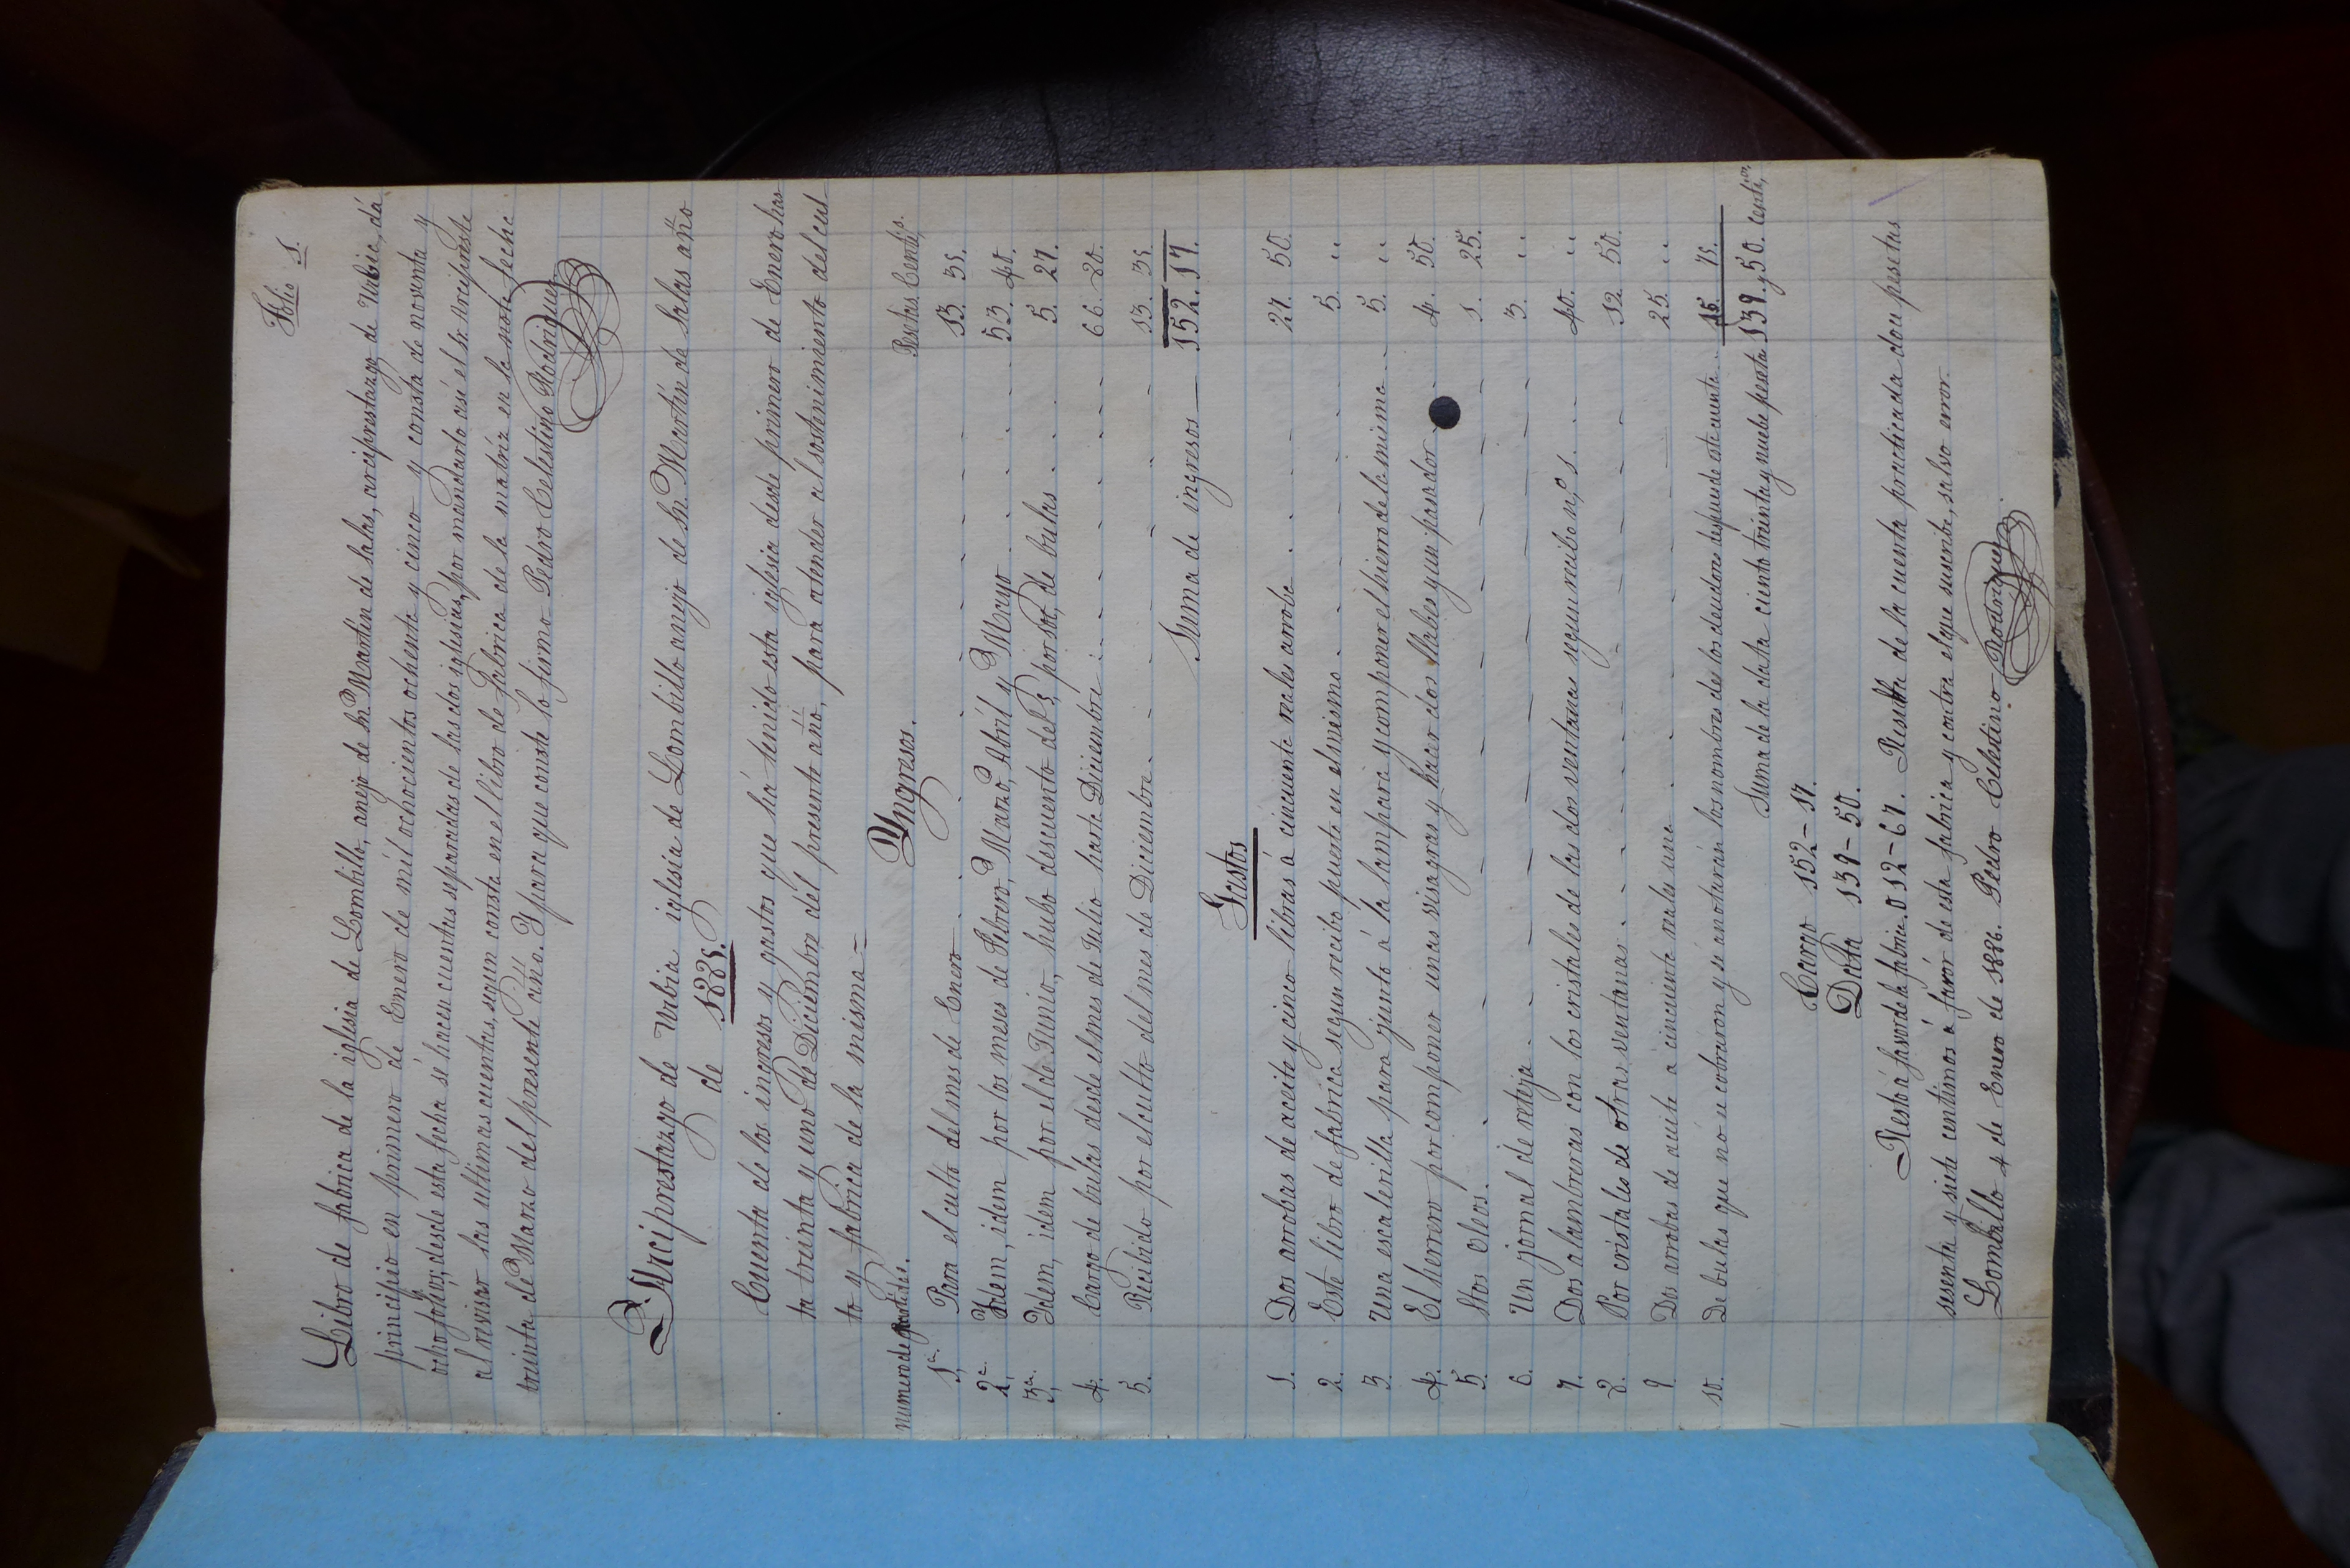 Folio 1.
Libro de fabrica de la iglesia de Lombillo, anejo de Sn. Martín de Salas, arciprestazgo de Urbia, dá
principio en primero de Enero de mil ochocientos ochenta y cinco y consta de noventa y
ocho folios; desde esta fecha sé hacen cuentas separadas de las dos iglesias, por mandarlo así el Sr. Arcipreste
al revisar las ultimas cuentas, segun consta en el libro de fabrica de la matriz en la nota fecha
treinta de Marzo del presente año. Y para que conste lo firmo Pedro Celestino Rodriguez
Arciprestazgo de Urbia iglesia de Lombillo anejo de Sn. Martín de Salas año
de 1885.
Cuenta de los ingresos y gastos que há tenido esta iglesia desde primero de Enero has
ta treinta y uno de Diciembre del presente año, para atender al sostenimiento del cul
to y fabrica de la misma =
numero de partidas. Ingresos. Pesetas Centis.
1ª. Para el culto del mes de Enero 13. 35.
2ª. Idem, idem por los meses de Febrero, Marzo, Abril y Mayo 53. 40.
3ª. Idem, idem por el de Junio, hubo descuento de Ps, por de bulas 5. 27.
4. Cargo de bulas desde el mes de Julio hasta Diciembre 66. 20.
5. Recibido por el culto del mes de Diciembre. 13. 35.
Suma de ingresos 152. 17.
Gastos
1. Dos arrobas de aceite y cinco libras á cincuenta reales arroba 27. 50.
2. Este libro de fabrica segun recibo puesto en el mismo 5. "
3. Una escalerilla para junto á la lampara y componer el hierro de la misma 5. "
4. El herrero por componer unas visagras y hacer dos llables y un pasador 4. 50.
5. Stos Oleos. 1. 25.
6. Un jornal de reteja 3. "
7. Dos alambreras con los cristales de las dos ventanas segun recibo n.º 1. 40. "
8. Por cristales de otras ventanas. 12. 50.
9. Dos arrobas de aceite a cincuenta reales una 25. "
10. De bulas que nó se cobraron y sé anotarán los nombres de los deudores despues de esta cuenta 15. 75.
Suma de la data ciento treinta y nuebe peseta 139. y 50. centi.os
Cargo 152-17.
Data 139-50.
Resto á favor de la fabrica 012-67. Resulta de la cuenta practicada doce pesetas
sesenta y siete centimos á favor de esta fabrica y contra el que suscribe, salvo error.
Lombillo 4 de Enero de 1886. Pedro Celestino Rodriguez